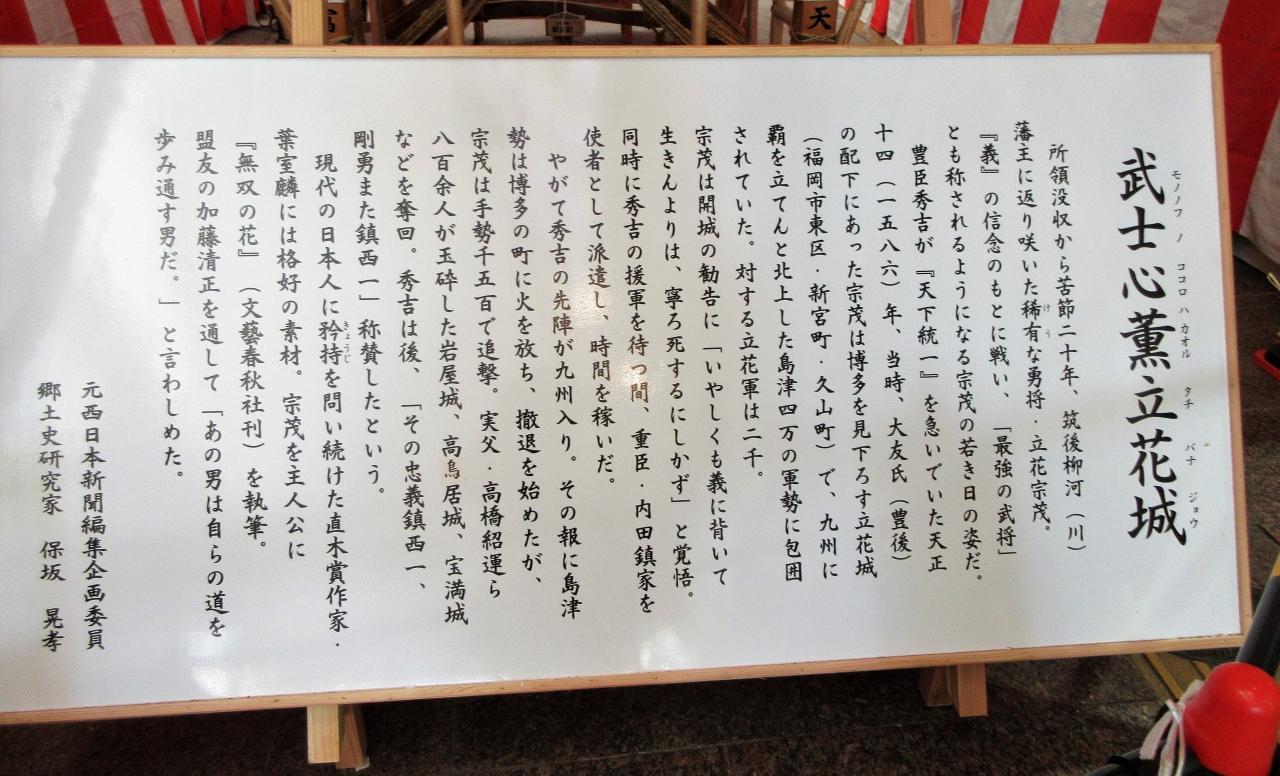 武士心薫立花城
モノノフ ノ ココロ ハ カオル タチ バナ ジョウ
所領没収から苦節二十年、筑後柳河（川）
藩主に返り咲いた稀有な勇将・立花宗茂。
けう
『義』の信念のもとに戦い、「最強の武将」
とも称されるようになる宗茂の若き日の姿だ。
豊臣秀吉が『天下統一』を急いでいた天正
十四（一五八六）年、当時、大友氏（豊後）
の配下にあった宗茂は博多を見下ろす立花城
（福岡市東区・新宮町・久山町）で、九州に
覇を立てんと北上した島津四万の軍勢に包囲
されていた。対する立花軍は二千。
宗茂は開城の勧告に「いやしくも義に背いて
生きんよりは、寧ろ死するにしかず」と覚悟。
同時に秀吉の援軍を待つ間、重臣・内田鎮家を
使者として派遣し、時間を稼いだ。
やがて秀吉の先陣が九州入り。その報に島津
勢は博多の町に火を放ち、撤退を始めたが、
宗茂は手勢千五百で追撃。実父・高橋紹運ら
八百余人が玉砕した岩屋城、高鳥居城、宝満城
などを奪回。秀吉は後、「その忠義鎮西一、
剛勇また鎮西一」称賛したという。
現代の日本人に矜持を問い続けた直木賞作家・
きょうじ
葉室麟には格好の素材。宗茂を主人公に
『無双の花』（文藝春秋社刊）を執筆。
盟友の加藤清正を通して「あの男は自らの道を
歩み通す男だ。」と言わしめた。
元西日本新聞編集企画委員
郷土史研究家　保坂　晃孝
天